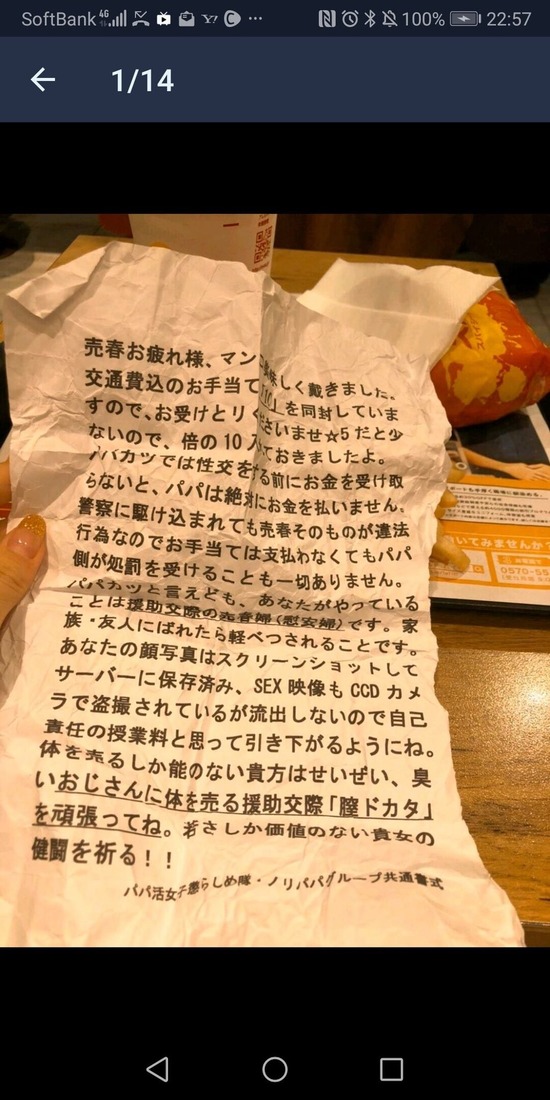 SoftBank 4G 100% 22:57
1/14
売春お疲れ様、マン味しく戴きました。
交通費込のお手当て「10」を同封していま
すので、お受けとりくださいませ☆5だと少
ないので、倍の10入ておきましたよ。
パパカツでは性交をする前にお金を受け取
らないと、パパは絶対にお金を払いません。
警察に駆け込まれても売春そのものが違法
行為なのでお手当ては支払わなくてもパパ
側が処罰を受けることも一切ありません。
パパカツと言えども、あなたがやっている
ことは援助交際の売春婦(慰安婦)です。家
族・友人にばれたら軽べつされることです。
あなたの顔写真はスクリーンショットして
サーバーに保存済み、SEX映像もCCDカメ
ラで盗撮されているが流出しないので自己
責任の授業料と思って引き下がるようにね。
体を売るしか能のない貴方はせいぜい、臭
いおじさんに体を売る援助交際「膣ドカタ」
を頑張ってね。若さしか価値のない貴女の
健闘を祈る！！
パパ活女子懲らしめ隊・ノリパパグループ共通書式
いてみませんか
0570-55